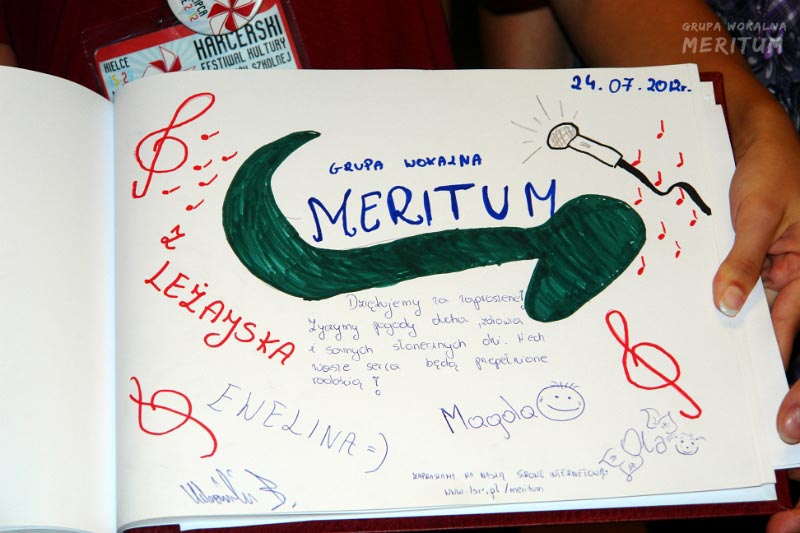 GRUPA WOKALNA
MERITUM
KIELCE
HARCERSKI
FESTIWAL KULTURY
SZKOLNEJ
24.07.2012r.
GRUPA WOKALNA
MERITUM
Z
LEŻAJSKA
Dziękujemy za zaproszenie!
Życzymy pogody ducha, zdrowia
i samych słonecznych dni. Niech
wasze serca będą przepełnione
radością!
EWELINA =)
Magda
Ola
ZAPRASZAMY NA NASZĄ STRONĘ INTERNETOWĄ: